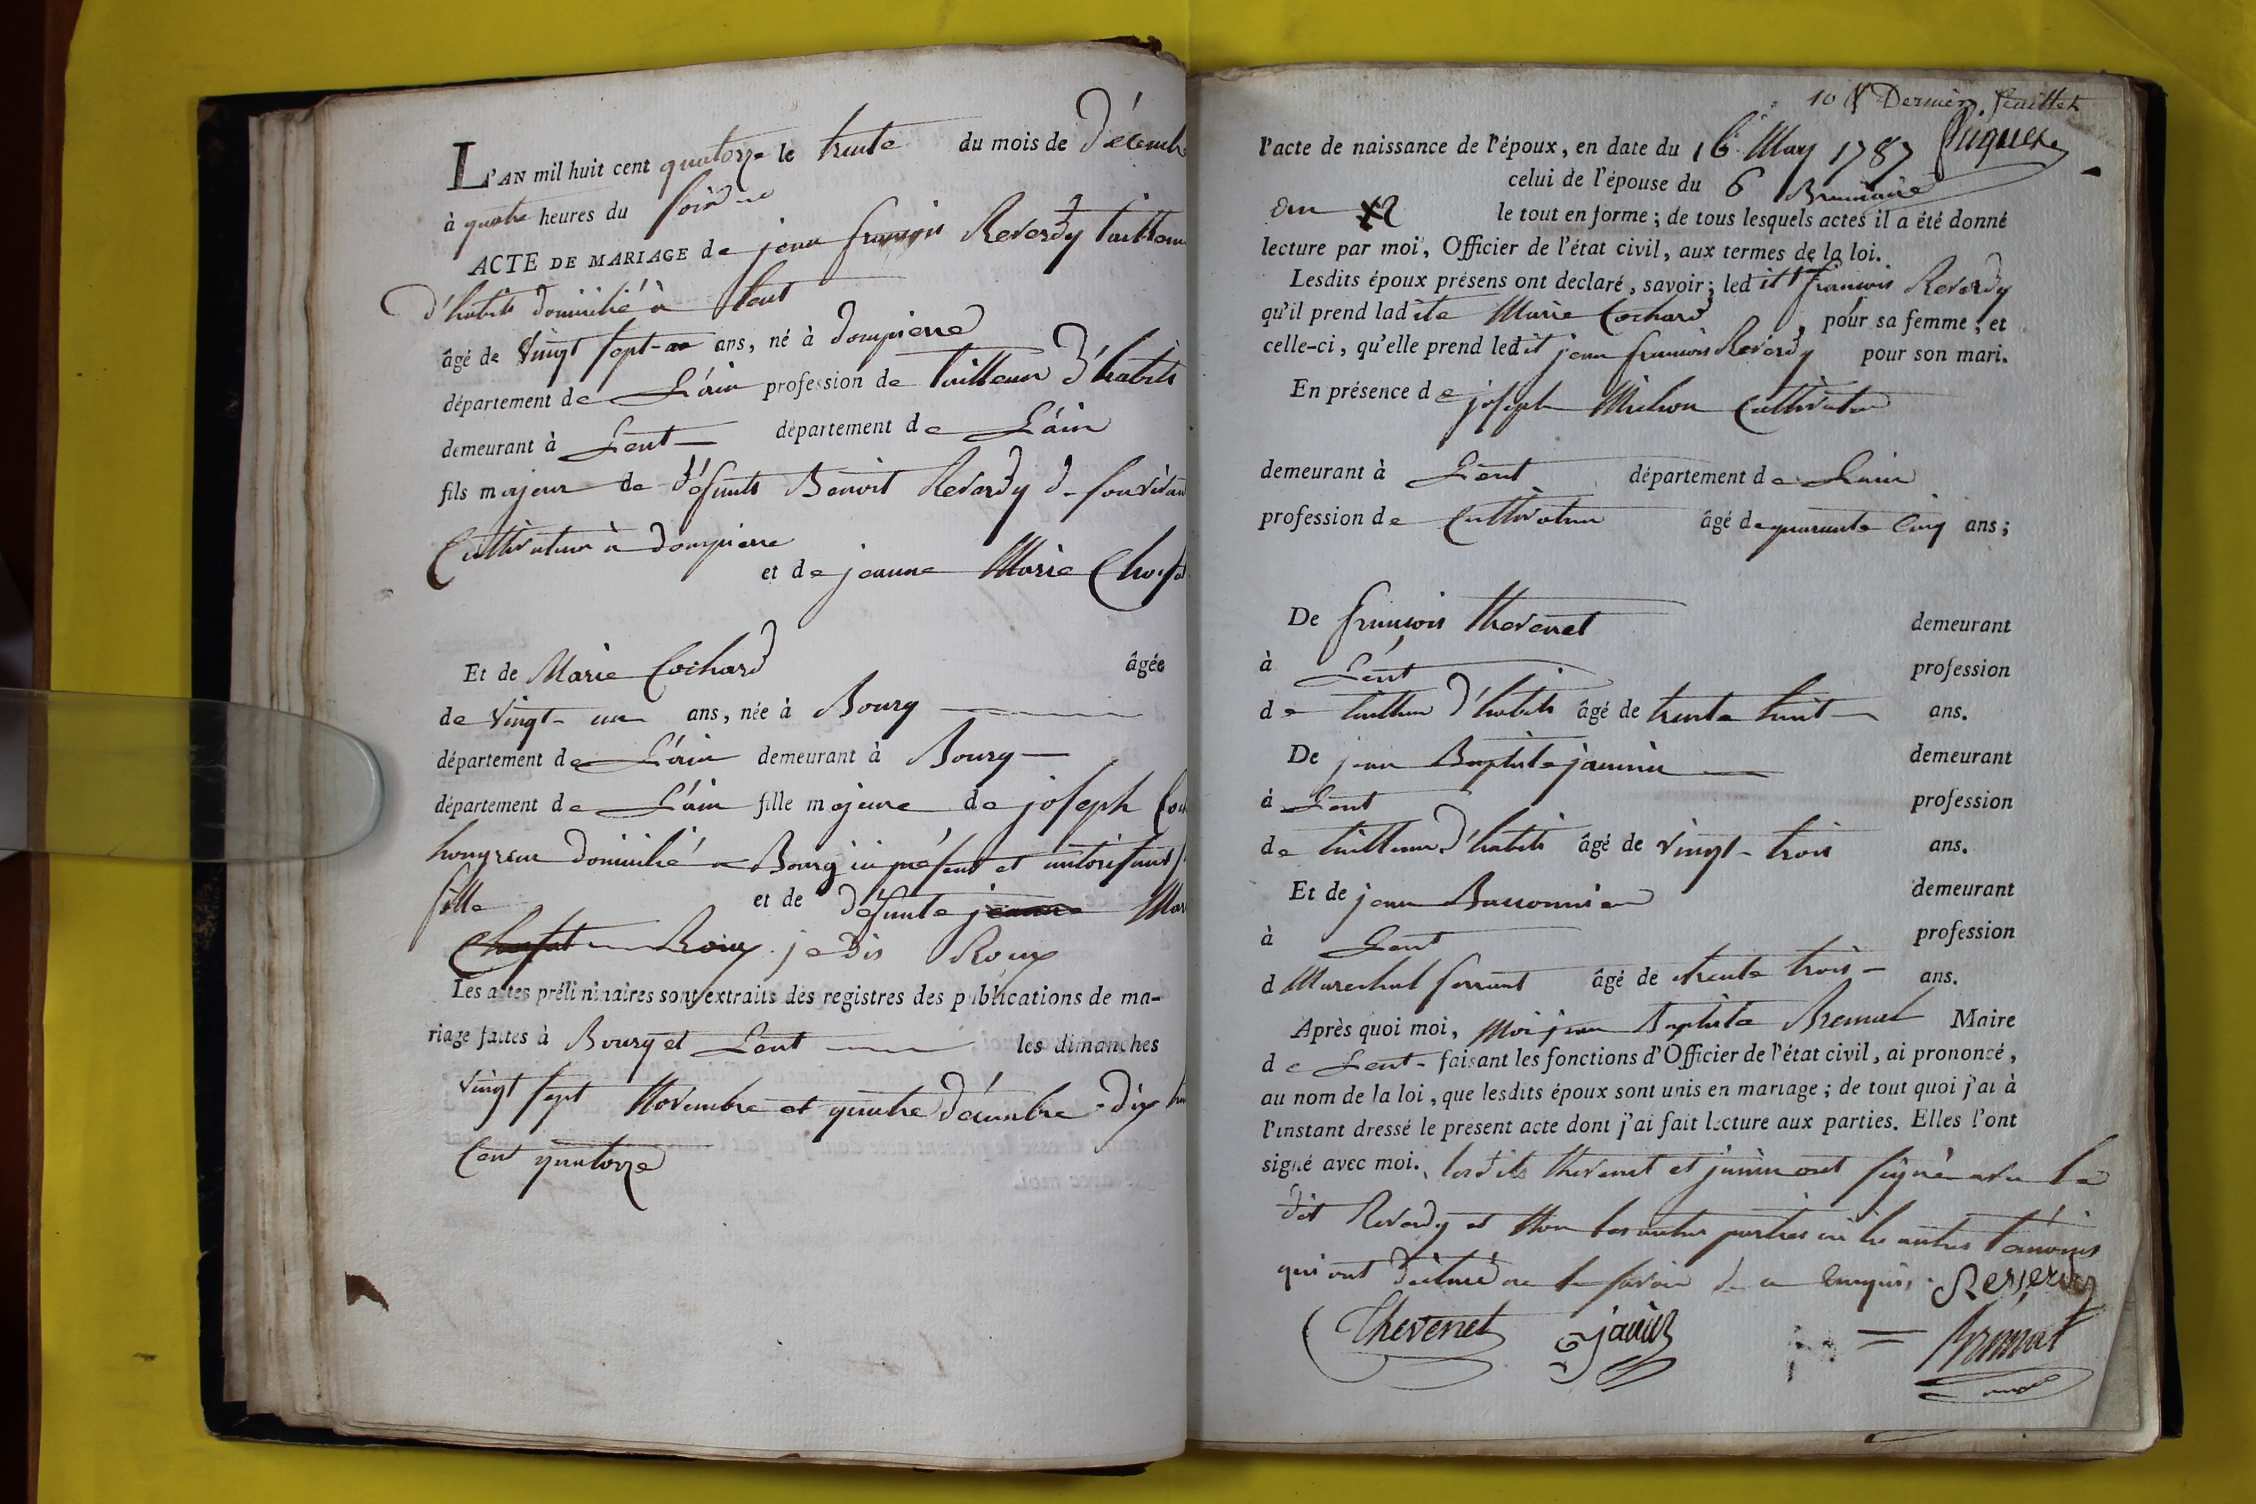 L'AN mil huit cent quatorze le trente du mois de Décemb
à quatre heures du soir
ACTE DE MARIAGE de jean françois Reverdy tailleur
d'habits domicilié à Lent
âgé de vingt sept ans, né à dompierre
département de L'ain profession de tailleur d'habits
demeurant à Lent département de L'ain
fils majeur de défunts Benoit Reverdy
Cultivateur à dompierre
et de jeanne Marie
Et de Marie Cochard âgée
de vingt un ans, née à Bourg
département de L'ain demeurant à Bourg
département de L'ain fille majeure de joseph
hongreur domicilié a Bourg ici présent et autorisant
fille et de défunte jeanne
Roux je dis Roux
Les actes préliminaires sont extraits des registres des publications de ma-
riage faites à Bourg et Lent les dimanches
vingt sept Novembre et quatre décembre dix
Cent quatorze
10 & Dernier feuillet
l'acte de naissance de l'époux, en date du 16 May 1787
celui de l'épouse du 6 Brumaire
an le tout en forme ; de tous lesquels actes il a été donné
lecture par moi, Officier de l'état civil, aux termes de la loi.
Lesdits époux présens ont declaré, savoir ; led it françois Reverdy
qu'il prend lad ite Marie Cochard , pour sa femme ; et
celle-ci, qu'elle prend led it jean francois Reverdy pour son mari.
En présence de joseph Michon Cultivateur
demeurant à Lent département de Lain
profession de Cultivateur âgé de quarante Cinq ans ;
De françois thevenet demeurant
à Lent profession
de tailleur d'habits âgé de trente huit ans.
De jean Baptiste jannin demeurant
à Lent profession
de tailleur d'habits âgé de vingt trois ans.
Et de jean demeurant
à Lent profession
d Marechal ferrant âgé de trente trois ans.
Après quoi moi, Moi jean Baptiste Maire
de Lent faisant les fonctions d'Officier de l'état civil, ai prononcé,
au nom de la loi, que lesdits époux sont unis en mariage ; de tout quoi j'ai à
l'instant dressé le present acte dont j'ai fait lecture aux parties. Elles l'ont
signé avec moi. lesdits thevenet et janin ont signé avec le
dit Reverdy et Non les autres parties ni les autres témoins
qui ont déclaré ne le savoir de ce enquis. Reverdy
Thevenet janin